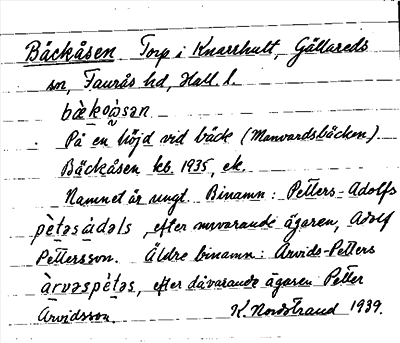 Bäckåsen Torp i Knarrhult, Gällareds
sn, Faurås hd, Hall. l.
bæ̀koåsan
På en höjd vid bäck (Manvardsbäcken).
Bäckåsen kb. 1935, ek.
Namnet är ungt. Binamn: Petters-Adolfs
pètəsádəls, efter nuvarande ägaren, Adolf
Pettersson. Äldre binamn: Arvids-Petters
àrvəspétəs, efter dåvarande ägaren Petter
Arvidsson. K. Nordstrand 1939.